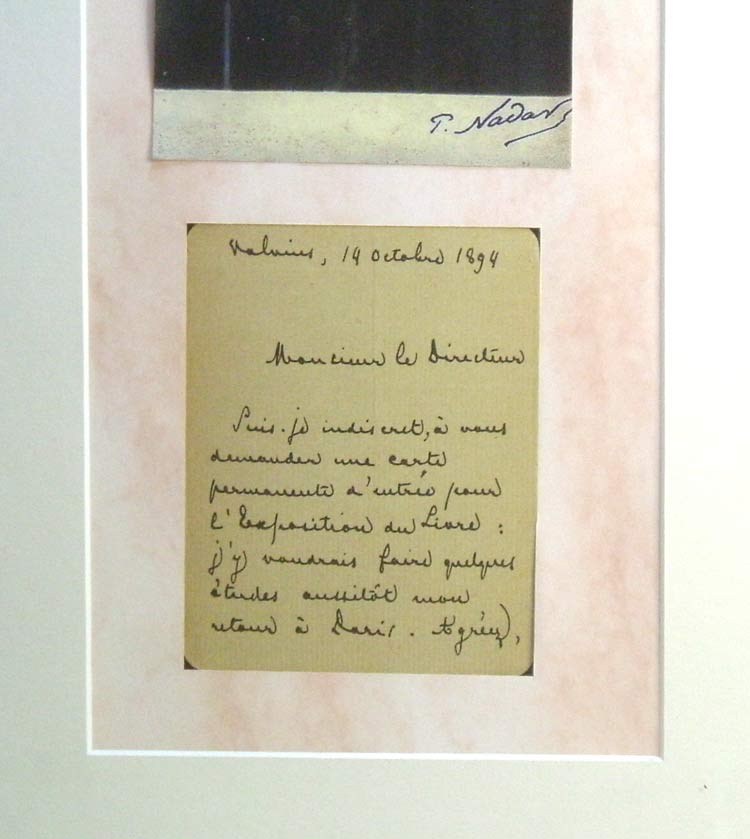 P. Nadar
Valvins, 14 Octobre 1894
Monsieur le Directeur
Suis-je indiscret, à vous
demander une carte
permanente d'entrée pour
l'Exposition du Livre :
j'y voudrais faire quelques
études aussitôt mon
retour à Paris. Agréez,